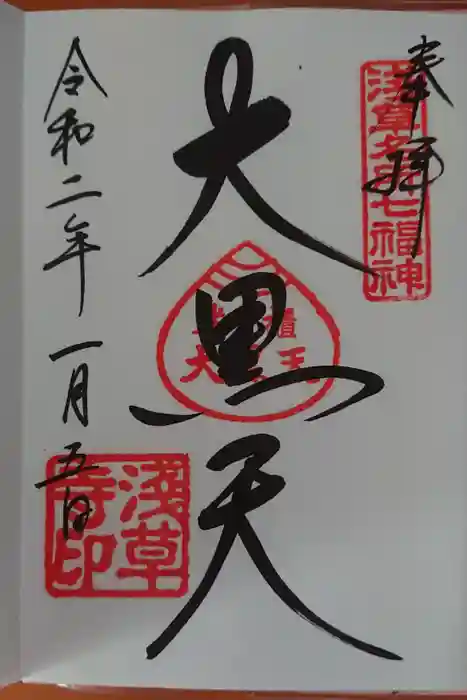 奉拝
浅草名所七福神
大黒天
令和二年一月五日
浅草
寺印